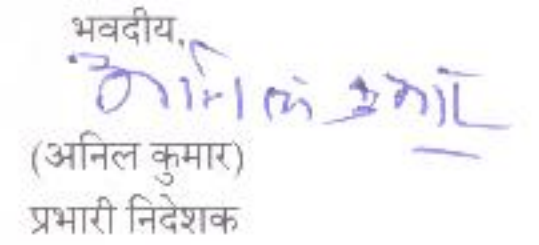 भवदीय,
अनिल कुमार
(अनिल कुमार)
प्रभारी निदेशक